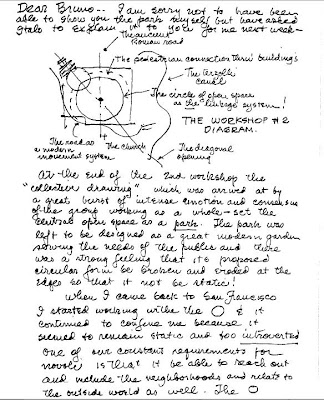 Dear Bruno -- I am sorry not to have been
able to show you the park myself but have asked
Italo to explain it to you for me next week-
The ancient
Roman road
The pedestrian connection thru buildings
The Terzolle
canal
The circle of open space
as the linkage system!
THE WORKSHOP #2
DIAGRAM.
The road as
a modern
movement system
The church
The diagonal
opening
At the end of the 2nd workshop the
"collective drawing" which was arrived at by
a great burst of intense emotion and consensus
of the group working as a whole - set the
central open space as a park. The park was
left to be designed as a great modern garden
serving the needs of the public and there
was a strong feeling that its proposed
circular form be broken and eroded at the
edges so that it not be static!
When I came back to San Francisco
I started working with the O & it
continued to confuse me because it
seemed to remain static and too introverted
One of our constant requirements for
Novoli is that it be able to reach out
and include the neighborhoods and relate to
the outside world as well. The O